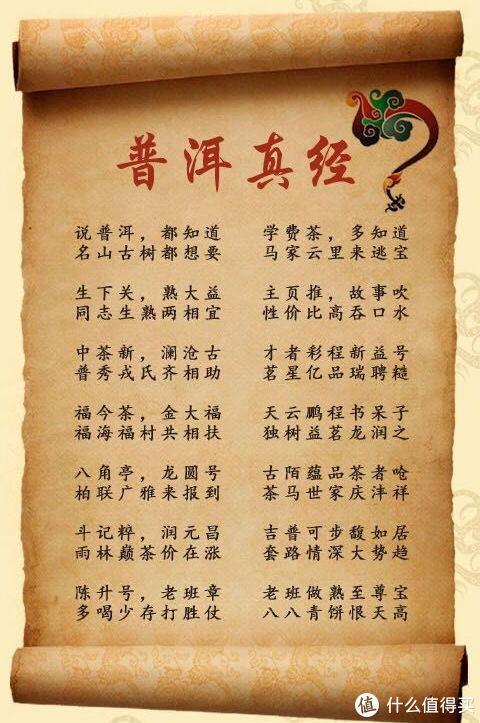 普洱真经
说普洱，都知道
名山古树都想要
学费茶，多知道
马家云里来逃宝
生下关，熟大益
同志生熟两相宜
主页推，故事吹
性价比高吞口水
中茶新，澜沧古
普秀戎氏齐相助
才者彩程新益号
茗星亿品瑞聘糙
福今茶，金大福
福海福村共相扶
天云鹏程书呆子
独树益茗龙润之
八角亭，龙圆号
柏联广雅来报到
古陌蕴品茶者呛
茶马世家庆沣祥
斗记粹，润元昌
雨林巅茶价在涨
吉普可步馥如居
套路情深大势趋
陈升号，老班章
多喝少存打胜仗
老班做熟至尊宝
八八青饼恨天高
值 什么值得买